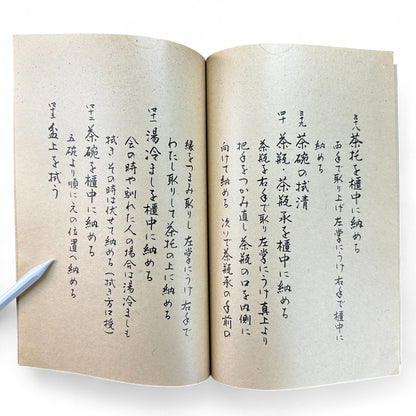 卅八 茶托を櫃中に納める
両手で取り上げ左掌にうけ右手で櫃中に
納める
卅九 茶碗の拭清
四十 茶瓶・茶瓶承を櫃中に納める
茶瓶を右手で取り左掌にうけ真上より
把手をつかみ直し茶瓶の口を内側に
向けて納める 次りで茶瓶承の手前の
縁をつまみ取りし左掌にうけ右手で
わたし取りして茶托の上に納める
四十一 湯冷ましを櫃中に納める
会の時や馴れた人の場合は湯冷ましも
拭き その時は伏せて納める(拭き方口授)
四十二 茶碗を櫃中に納める
五碗より順に元の位置へ納める
四十三 盆上を拭う